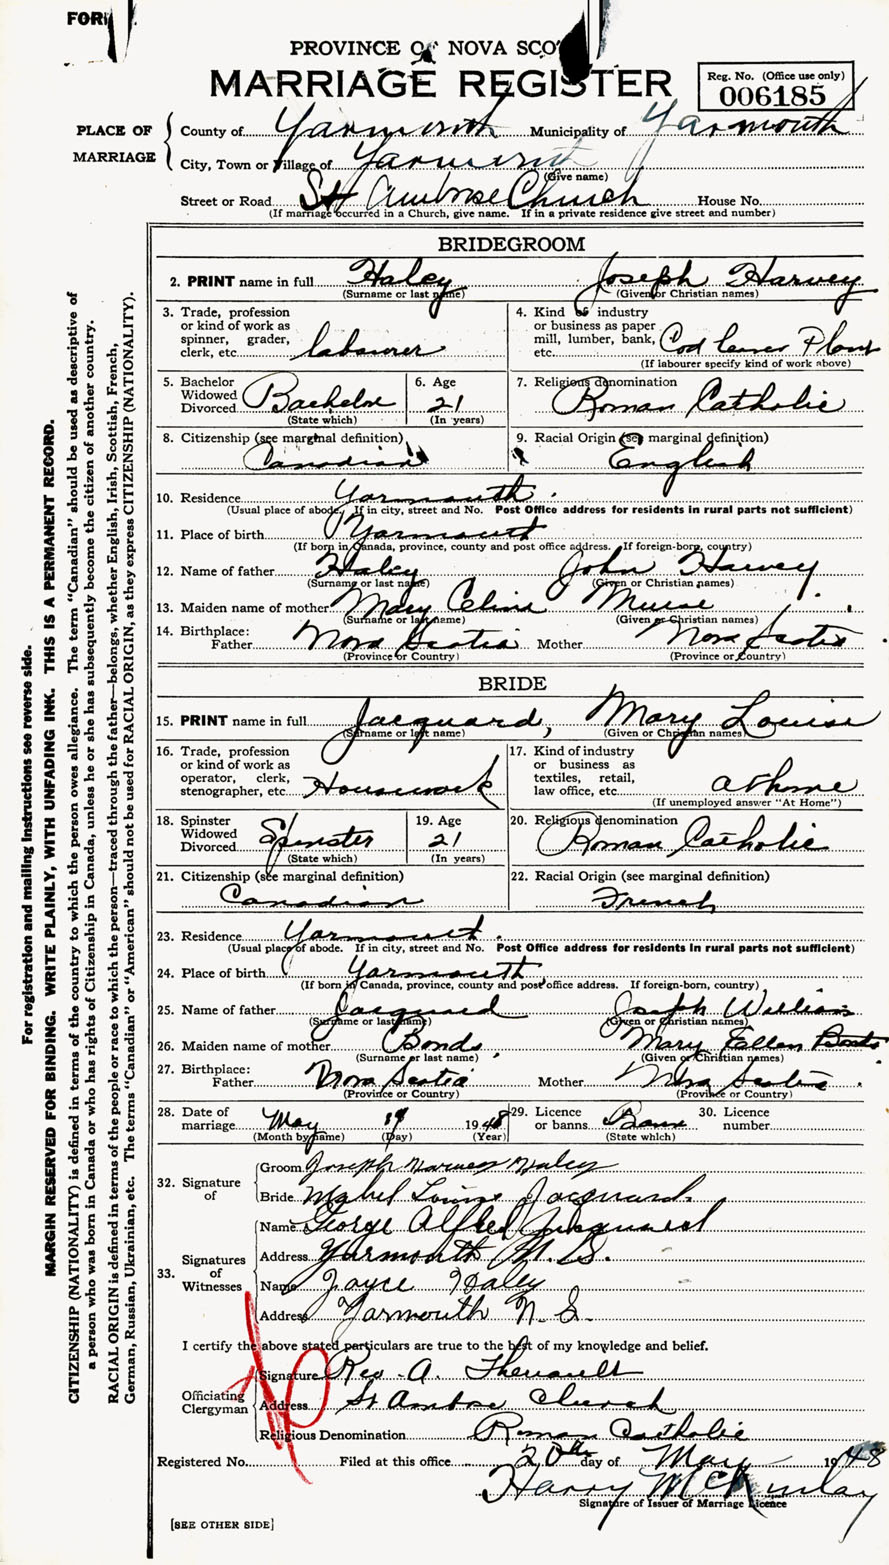 FOR
PROVINCE OF NOVA SCO
MARRIAGE REGISTER
Reg. No. (Office use only)
006185
PLACE OF MARRIAGE
County of Yarmouth Municipality of Yarmouth
City, Town or Village of Yarmouth
(Give name)
Street or Road St Ambrose Church House No.
(If marriage occurred in a Church, give name. If in a private residence give street and number)
BRIDEGROOM
2. PRINT name in full Haley Joseph Harvey
(Surname or last name) (Given or Christian names)
3. Trade, profession or kind of work as spinner, grader, clerk, etc. labourer
4. Kind of industry or business as paper mill, lumber, bank, etc. Cod liver Plant
(If labourer specify kind of work above)
5. Bachelor Widowed Divorced Bachelor
(State which)
6. Age 21
(In years)
7. Religious denomination
Roman Catholic
8. Citizenship (see marginal definition)
Canadian
9. Racial Origin (see marginal definition)
English
10. Residence Yarmouth
(Usual place of abode. If in city, street and No. Post Office address for residents in rural parts not sufficient)
11. Place of birth Yarmouth
(If born in Canada, province, county and post office address. If foreign-born, country)
12. Name of father Haley John Harvey
(Surname or last name) (Given or Christian names)
13. Maiden name of mother Mary Celina Muise
(Surname or last name) (Given or Christian names)
14. Birthplace: Father Nova Scotia Mother Nova Scotia
(Province or Country) (Province or Country)
BRIDE
15. PRINT name in full Jacquard, Mary Louise
(Surname or last name) (Given or Christian names)
16. Trade, profession or kind of work as operator, clerk, stenographer, etc. Housework
17. Kind of industry or business as textiles, retail, law office, etc. at home
(If unemployed answer "At Home")
18. Spinster Widowed Divorced Spinster
(State which)
19. Age 21
(In years)
20. Religious denomination
Roman Catholic
21. Citizenship (see marginal definition)
Canadian
22. Racial Origin (see marginal definition)
French
23. Residence Yarmouth.
(Usual place of abode. If in city, street and No. Post Office address for residents in rural parts not sufficient)
24. Place of birth Yarmouth
(If born in Canada, province, county and post office address. If foreign-born, country)
25. Name of father Jacquard Joseph William
(Surname or last name) (Given or Christian names)
26. Maiden name of mother Bonds Mary Ellen
(Surname or last name) (Given or Christian names)
27. Birthplace: Father Nova Scotia Mother Nova Scotia
(Province or Country) (Province or Country)
28. Date of marriage May 19 1948
(Month by name) (Day) (Year)
29. Licence or banns Bann
(State which)
30. Licence number
32. Signature of
Groom Joseph Harvey Haley
Bride Mabel Louise Jacquard.
33. Signatures of Witnesses
Name George Alfred Jacquard
Address Yarmouth N. S.
Name Joyce Haley
Address Yarmouth N. S.
I certify the above stated particulars are true to the best of my knowledge and belief.
Officiating Clergyman
Signature Rev. A. Theriault
Address St Ambrose Church
Religious Denomination Roman Catholic
Registered No. Filed at this office 20th day of May 1948
Harry McKinlay
Signature of Issuer of Marriage Licence
[SEE OTHER SIDE]
For registration and mailing instructions see reverse side.
MARGIN RESERVED FOR BINDING. WRITE PLAINLY, WITH UNFADING INK. THIS IS A PERMANENT RECORD.
CITIZENSHIP (NATIONALITY) is defined in terms of the country to which the person owes allegiance. The term "Canadian" should be used as descriptive of
a person who was born in Canada or who has rights of Citizenship in Canada, unless he or she has subsequently become the citizen of another country.
RACIAL ORIGIN is defined in terms of the people or race to which the person—traced through the father—belongs, whether English, Irish, Scottish, French,
German, Russian, Ukrainian, etc. The terms "Canadian" or "American" should not be used for RACIAL ORIGIN, as they express CITIZENSHIP (NATIONALITY).